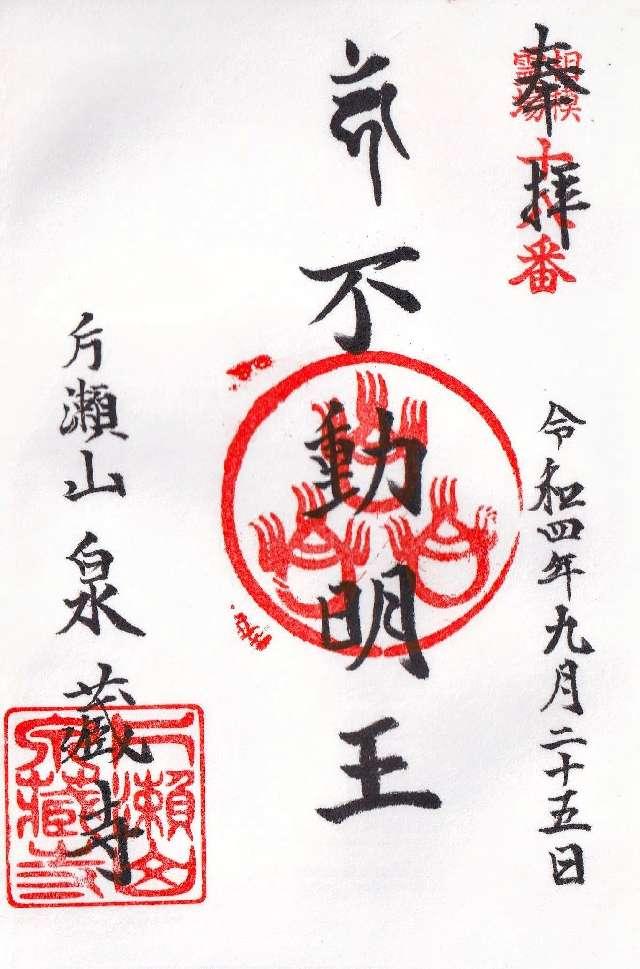 奉拝
相模
霊場
十八番
令和四年九月二十五日
不動明王
片瀬山 泉蔵寺
片瀬山
泉蔵寺